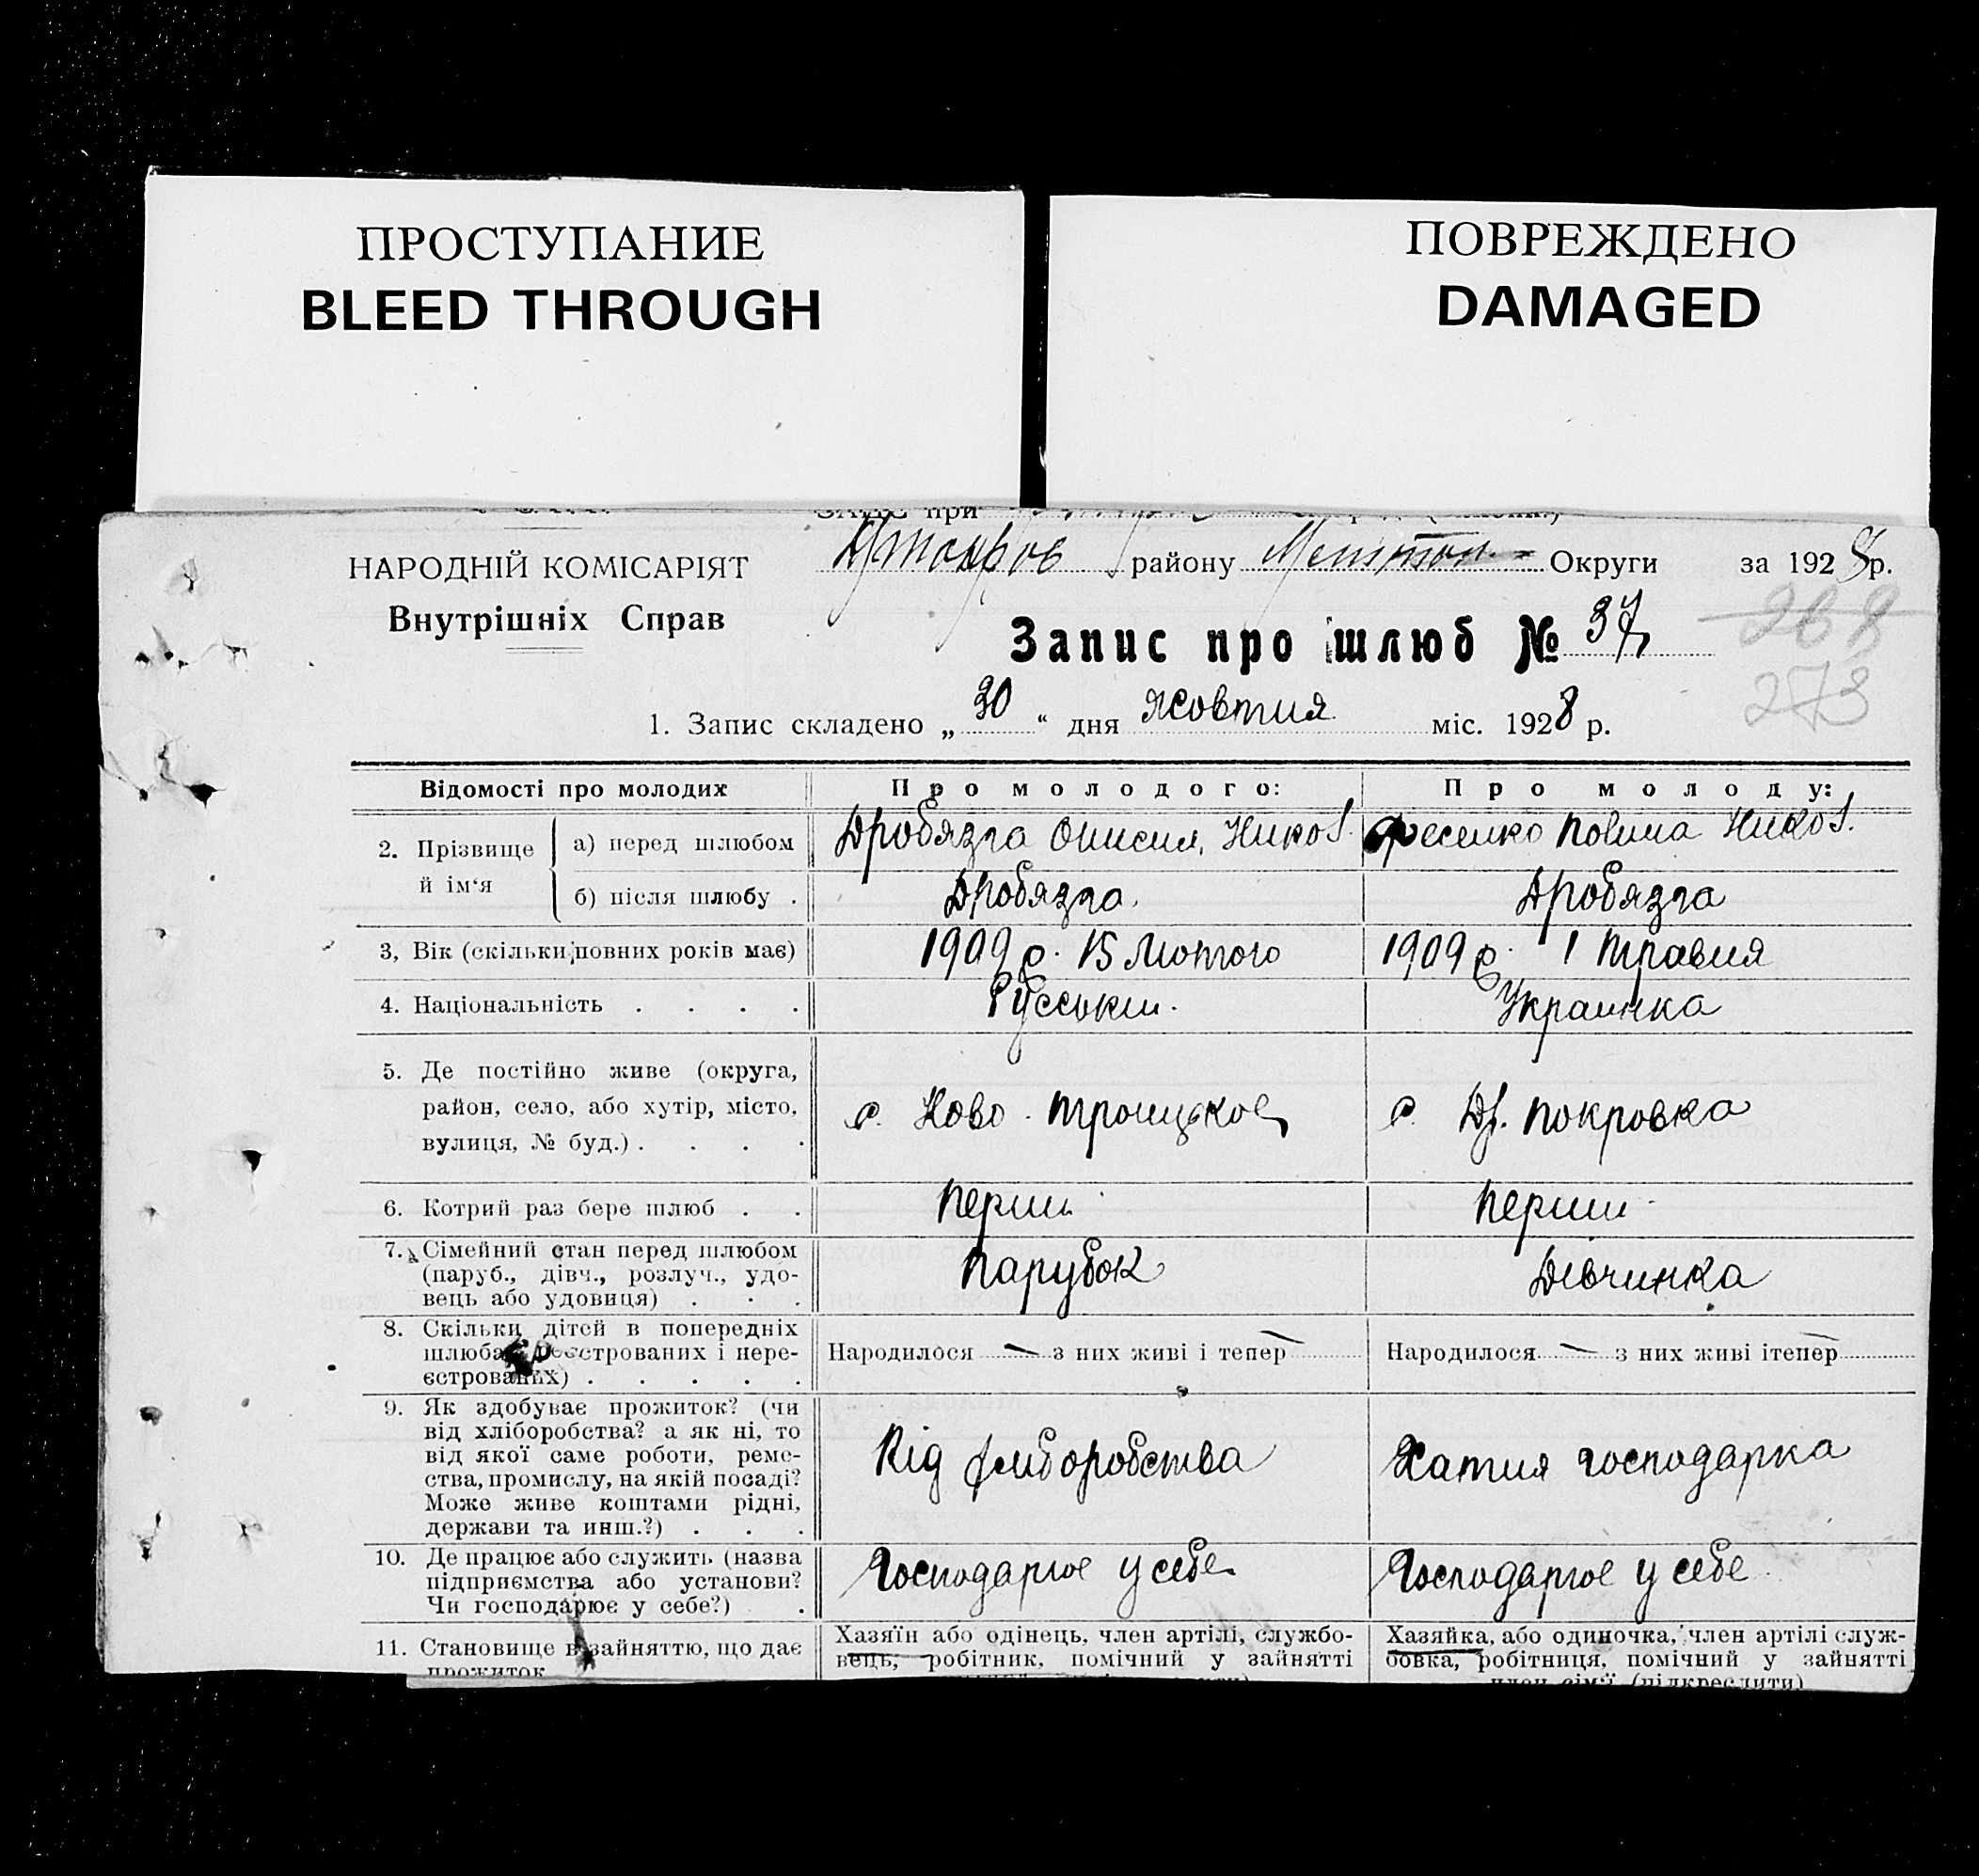 ПРОСТУПАНИЕ
BLEED THROUGH
ПОВРЕЖДЕНО
DAMAGED
НАРОДНІЙ КОМІСАРІЯТ
Внутрішніх Справ
району Округи за 1928 р.
Запис про шлюб № 37
268
273
1. Запис складено „30“ дня жовтня міс. 1928 р.
Відомості про молодих
Про молодого:
Про молоду:
2. Прізвище й ім‘я
а) перед шлюбом
Дробязга Никол.
Фесенко Никол.
б) після шлюбу .
Дробязга
Дробязга
3, Вік (скільки повних років має)
1909 р. 15 Лютого
1909 р. 1 травня
4. Національність . . . .
Руський.
Украинка
5. Де постійно живе (округа,
район, село, або хутір, місто,
вулиця, № буд.) . . . .
с. Ново-троицькое
с. Дм. покровка
6. Котрий раз бере шлюб . .
перши
перши
7. Сімейний стан перед шлюбом
(паруб., дівч., розлуч., удо-
вець або удовиця) . . .
парубок
Дівчинка
8. Скільки дітей в попередніх
шлюбах реєстрованих і нере-
єстрованих) . . . . .
Народилося — з них живі і тепер —
Народилося — з них живі ітепер —
9. Як здобуває прожиток? (чи
від хліборобства? а як ні, то
від якої саме роботи, реме-
ства, промислу, на якій посаді?
Може живе коштами рідні,
держави та инш.?) . . .
Від хліборобства
Хатня господарка
10. Де працює або служить (назва
підприємства або установи?
Чи господарює у себе?) .
Господарює у себе
Господарює у себе
11. Становище в зайняттю, що дає
прожиток
Хазяїн або одінець, член артілі, службо-
вець, робітник, помічний у зайнятті
Хазяйка, або одиночка, член артілі служ-
бовка, робітниця, помічний у зайнятті
член сім'ї (підкреслити)